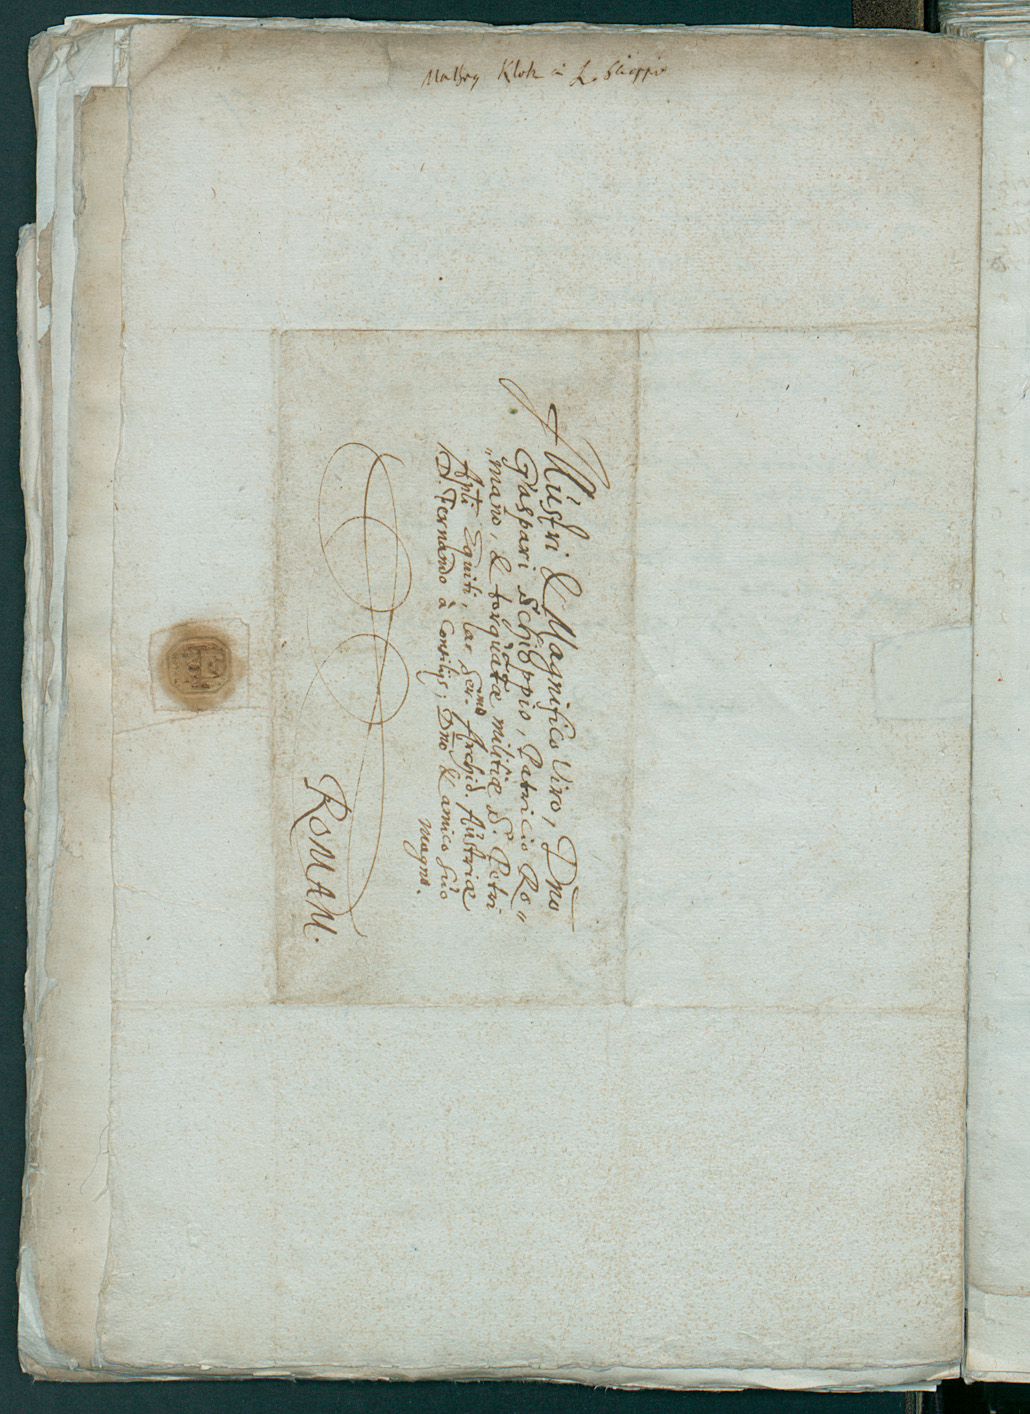 Mathey Klok
Illustri & Magnifico Viro, Dño
Gaspari Schoppio, Patricio Ro„
„mano, & torquatæ militiæ S. Petri
Apli Equiti, Ser.mo Archid. Austriæ
D. Fernando à Consilijs, Dño & amico suo
magno.
ROMAM.